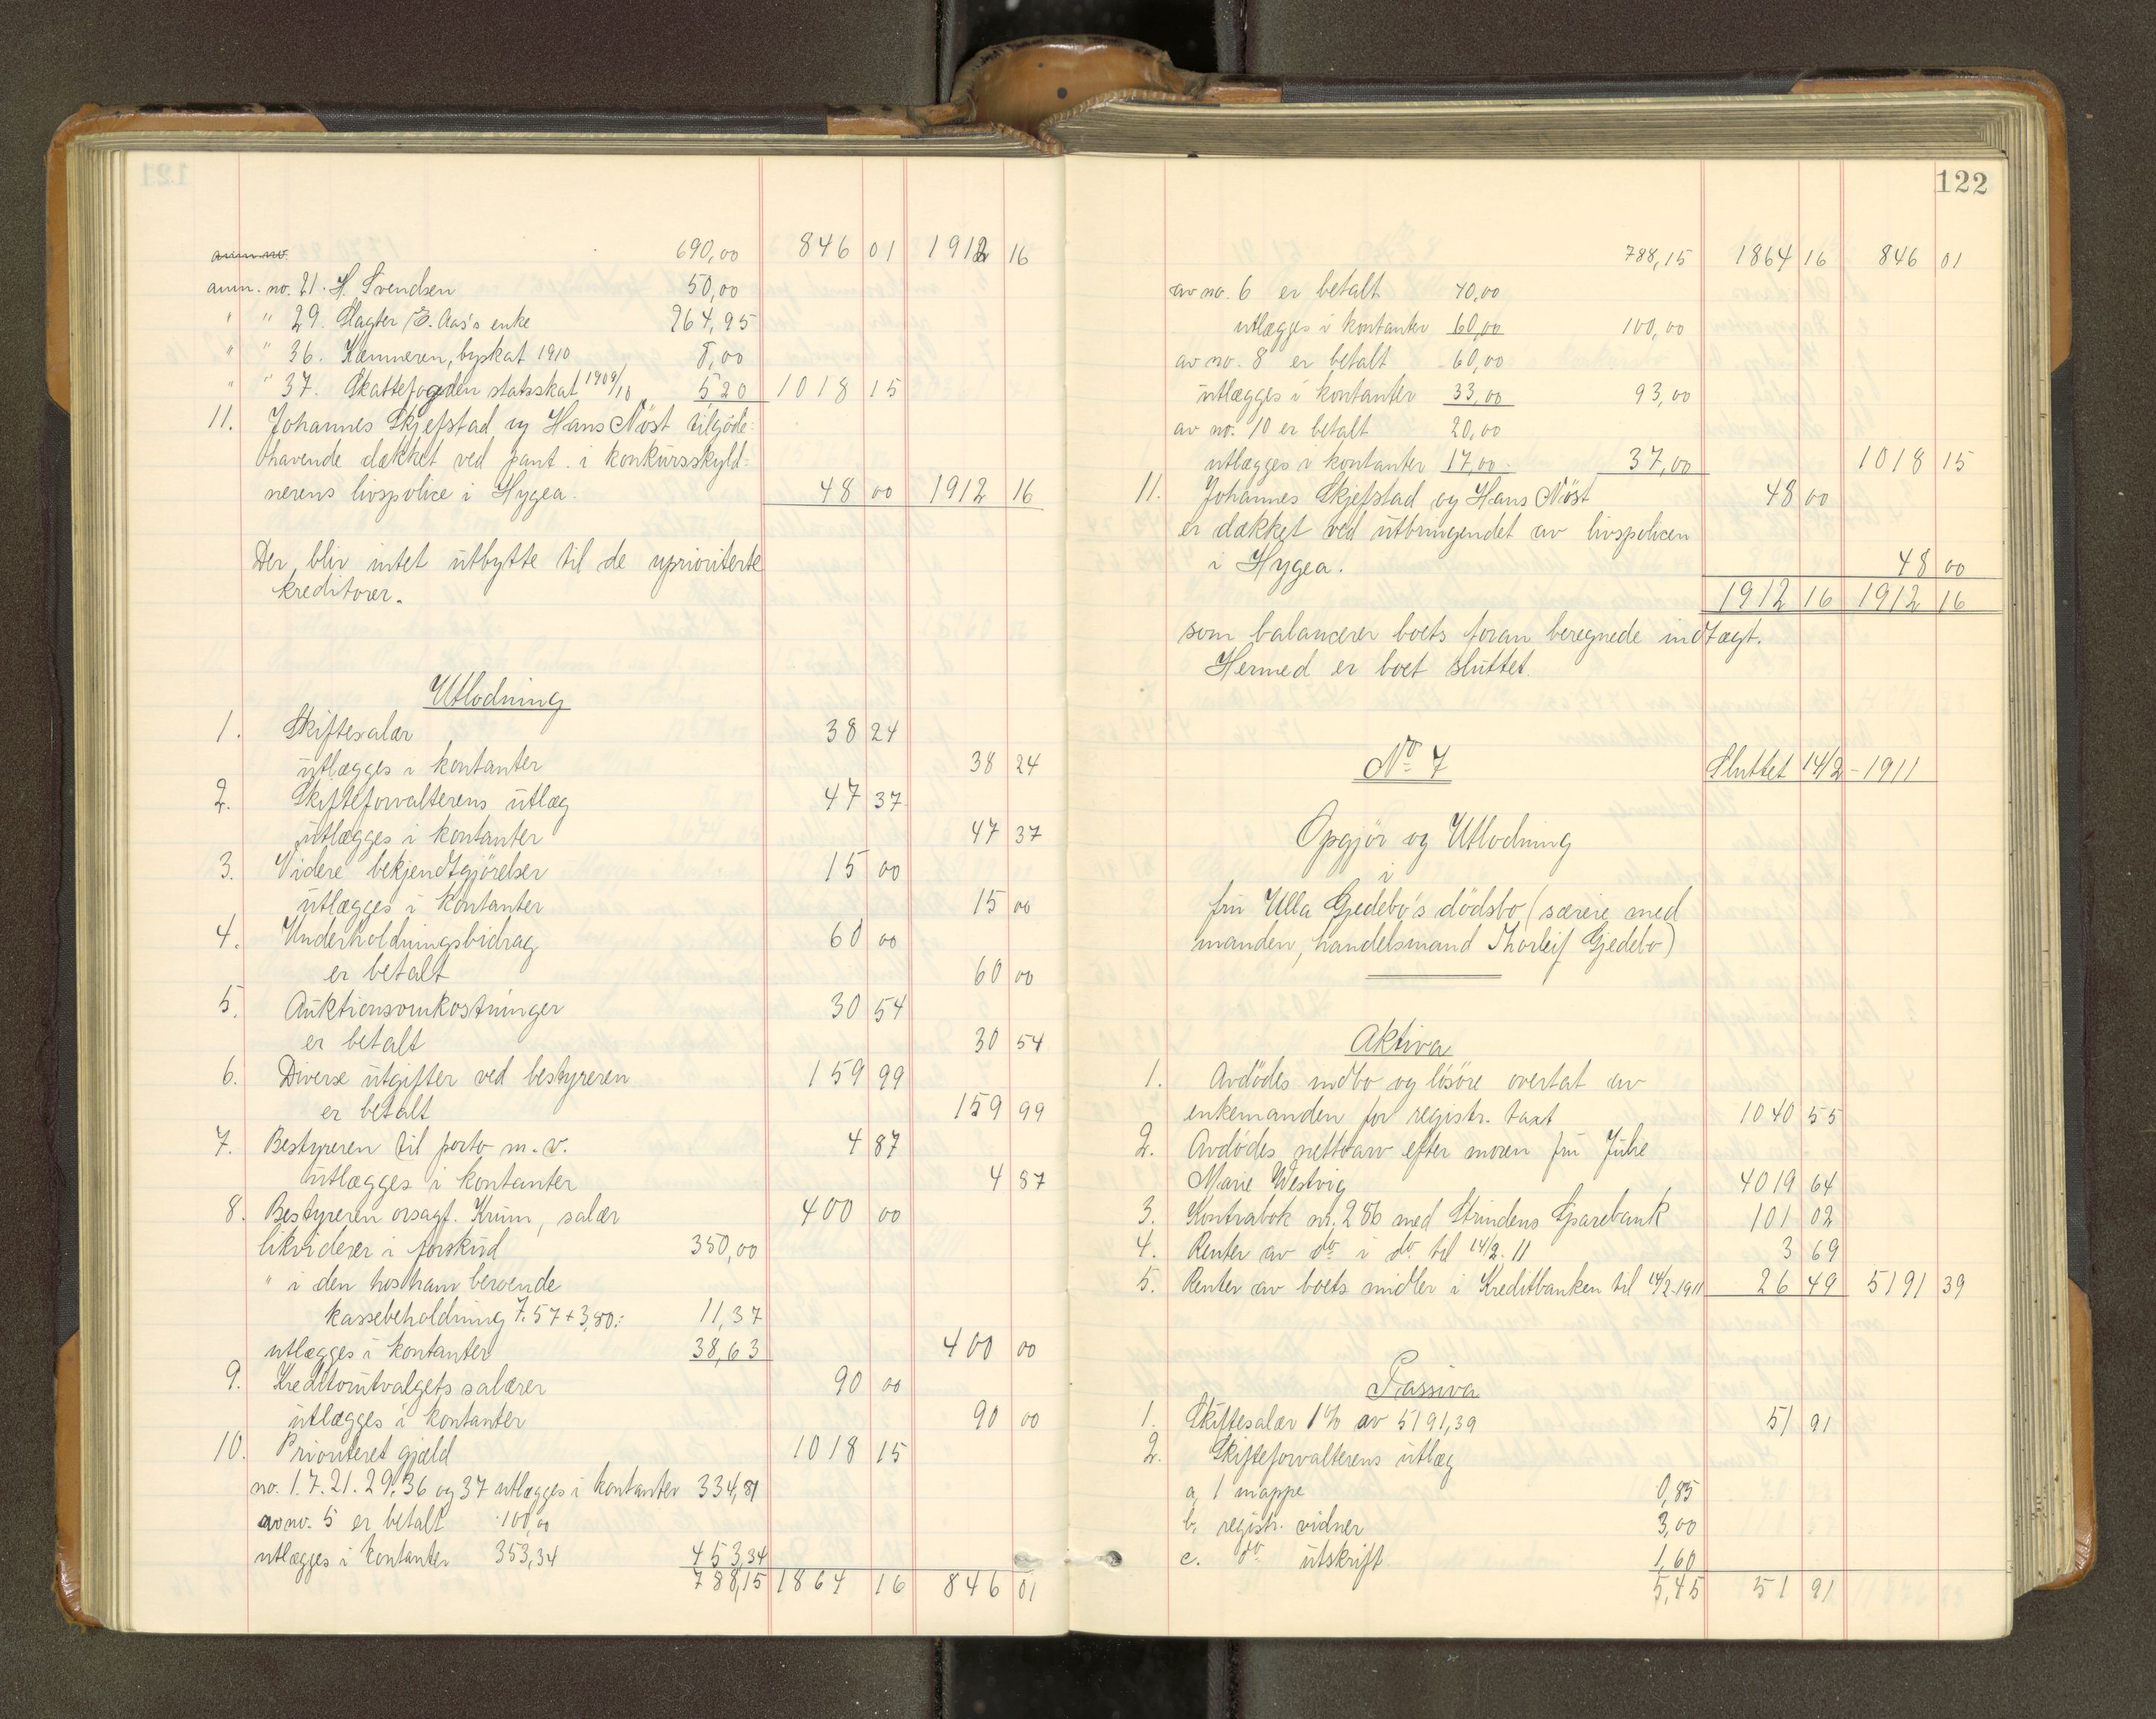 ~~anm. no.~~ 690,00 846 01 1912 16
anm. no. 21. H. Svendsen 50,00
" " 29. Slagter E. Aas's enke 264,95
" " 36. Kæmneren, byskat 1910 8,00
" " 37. Skattefogden statsskat 1909/10 5,20 1018 15
11. Johannes Skjefstad og Hans Nöst tilgode-
havende dækket ved pant i konkursskyld-
nerens livspolice i Hygea. 48 00 1912 16
Der bliv intet utbytte til de uprioriterte
kreditorer.
Utlodning
1. Skiftesalær 38 24
utlægges i kontanter 38 24
2. Skifteforvalterens utlæg 47 37
utlægges i kontanter 47 37
3. Videre bekjendtgjörelser 15 00
utlægges i kontanter 15 00
4. Underholdningsbidrag 60 00
er betalt 60 00
5. Auktionsomkostninger 30 54
er betalt 30 54
6. Diverse utgifter ved bestyreren 159 99
er betalt 159 99
7. Bestyreren til porto m.v. 4 87
utlægges i kontanter 4 87
8. Bestyreren orsagf. Krum, salær 400 00
likviderer i forskud 350,00
" i den hos ham beroende
kassebeholdning 7.57 + 3,80: 11,37
utlægges i kontanter 38,63 400 00
9. Kreditorutvalgets salærer 90 00
utlægges i kontanter 90 00
10. Prioriteret gjæld 1018 15
no. 1. 7. 21. 29. 36 og 37 utlægges i kontanter 334,81
av no. 5 er betalt 100,00
utlægges i kontanter 353,34 453,34
788,15 1864 16 846 01
122
788,15 1864 16 846 01
av no. 6 er betalt 40,00
utlægges i kontanter 60,00 100,00
av no. 8 er betalt 60,00
utlægges i kontanter 33,00 93,00
av no. 10 er betalt 20,00
utlægges i kontanter 17,00 37,00 1018 15
11. Johannes Skjefstad og Hans Nöst 48 00
er dækket ved utbringendet av livspolicen
i Hygea. 48 00
1912 16 1912 16
som balancerer boets foran beregnede indtægt.
Hermed er boet sluttet.
No 7 Sluttet 14/2 - 1911
Opgjör og Utlodning
i
fru Ulla Gjedebo's dödsbo (særeie med
manden, handelsmand Thorleif Gjedebo)
Aktiva
1. Avdödes indbo og lösöre overtat av
enkemanden for registr. taxt 1040 55
2. Avdödes nettoarv efter moren fru Julie
Marie Westvig 4019 64
3. Kontrabok nr. 286 med Strindens Sparebank 101 02
4. Renter av do i do til 14/2. 11 3 69
5. Renter av boets midler i Kreditbanken til 14/2-1911 26 49 5191 39
Passiva
1. Skiftesalær 1% av 5191,39 51 91
2. Skifteforvalterens utlæg
a, 1 mappe 0,85
b. registr. vidner 3,00
c. do utskrift 1,60
5,45 51 91